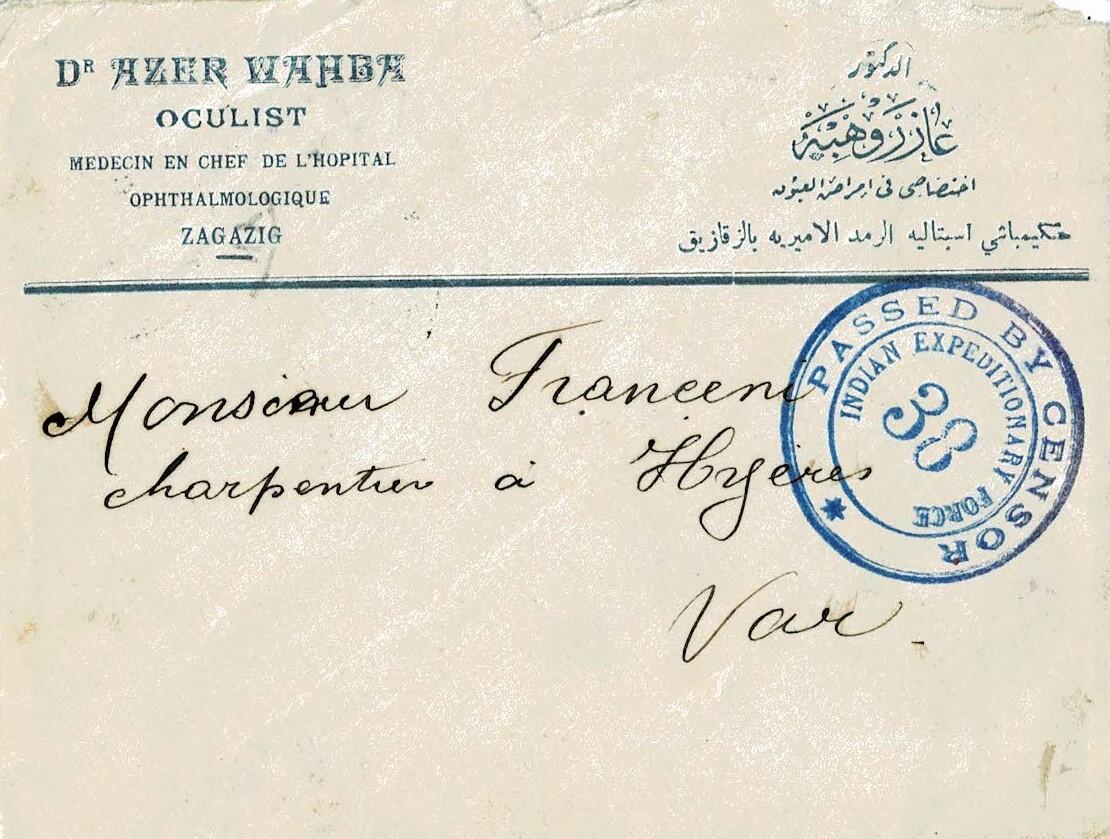 DR AZER WAHBA
OCULIST
MEDECIN EN CHEF DE L'HOPITAL
OPHTHALMOLOGIQUE
ZAGAZIG
الدكتور
عازر وهبة
اختصاصى فى امراض العيون
حكيمباشي اسبتاليه الرمد الاميريه بالزقازيق
PASSED BY CENSOR
INDIAN EXPEDITIONARY FORCE
38
Monsieur Franceni
charpentier à Hyères
Var.